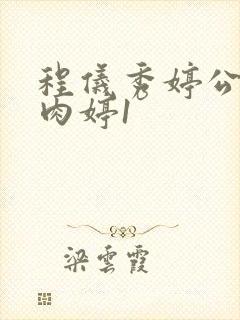 程儀秀婷公
肉婷1
梁雲霞